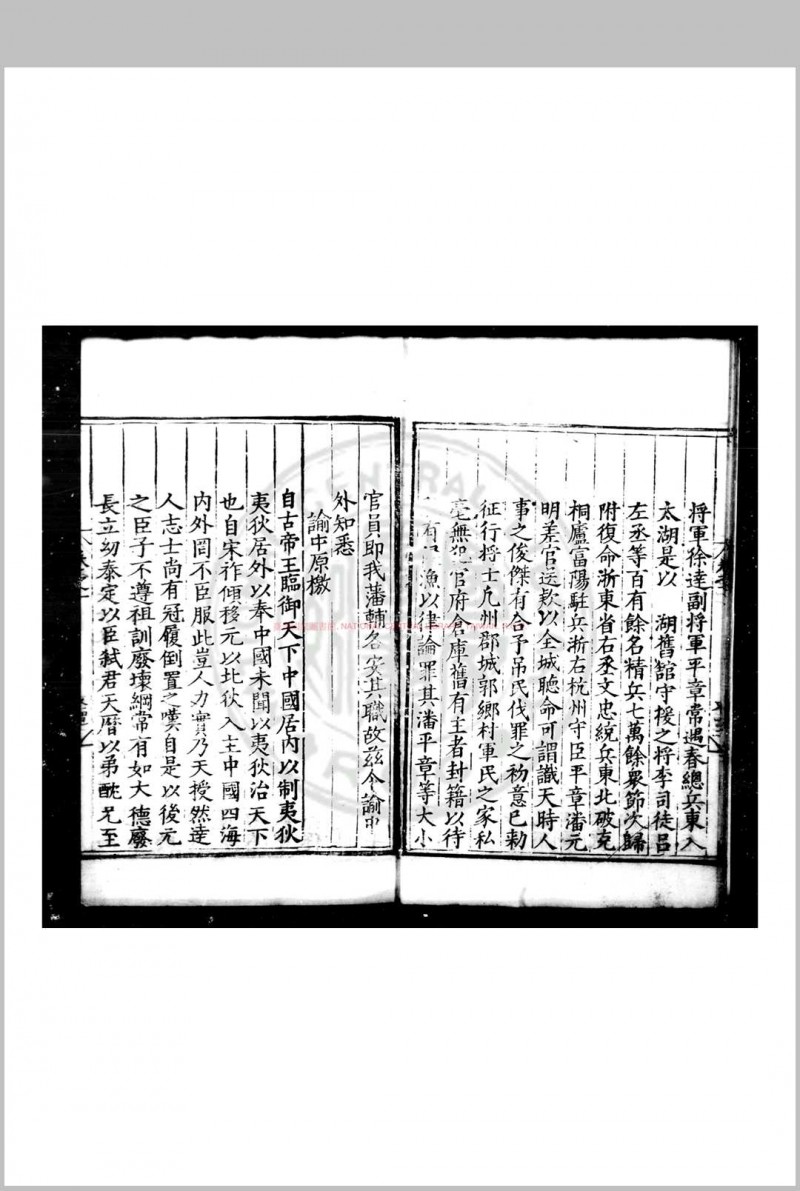 將軍徐達副將軍平章常遇春總兵東入
太湖是以 湖舊舘守援之將李司徒呂
左丞等百有餘名精兵七萬餘衆節次歸
附復命浙東省右丞文忠統兵東北破克
桐廬富陽駐兵浙右杭州守臣平章潘元
明差官送欵以全城聽命可謂識天時人
事之俊傑有合予吊民伐罪之初意已勅
征行將士凢州郡城郭鄉村軍民之家私
毫無犯官府倉庫舊有主者封籍以待
有 漁以律論罪其潘平章等大小
官員即我藩輔各安其職故兹令諭中
外知悉
諭中原檄
自古帝王臨御天下中國居内以制夷狄
夷狄居外以奉中國未聞以夷狄治天下
也自宋祚傾移元以北狄入主中國四海
内外罔不臣服此豈人力實乃天授然達
人志士尚有冠履倒置之嘆自是以後元
之臣子不遵祖訓廢壞綱常有如大德廢
長立幼泰定以臣弑君天曆以弟酖兄至